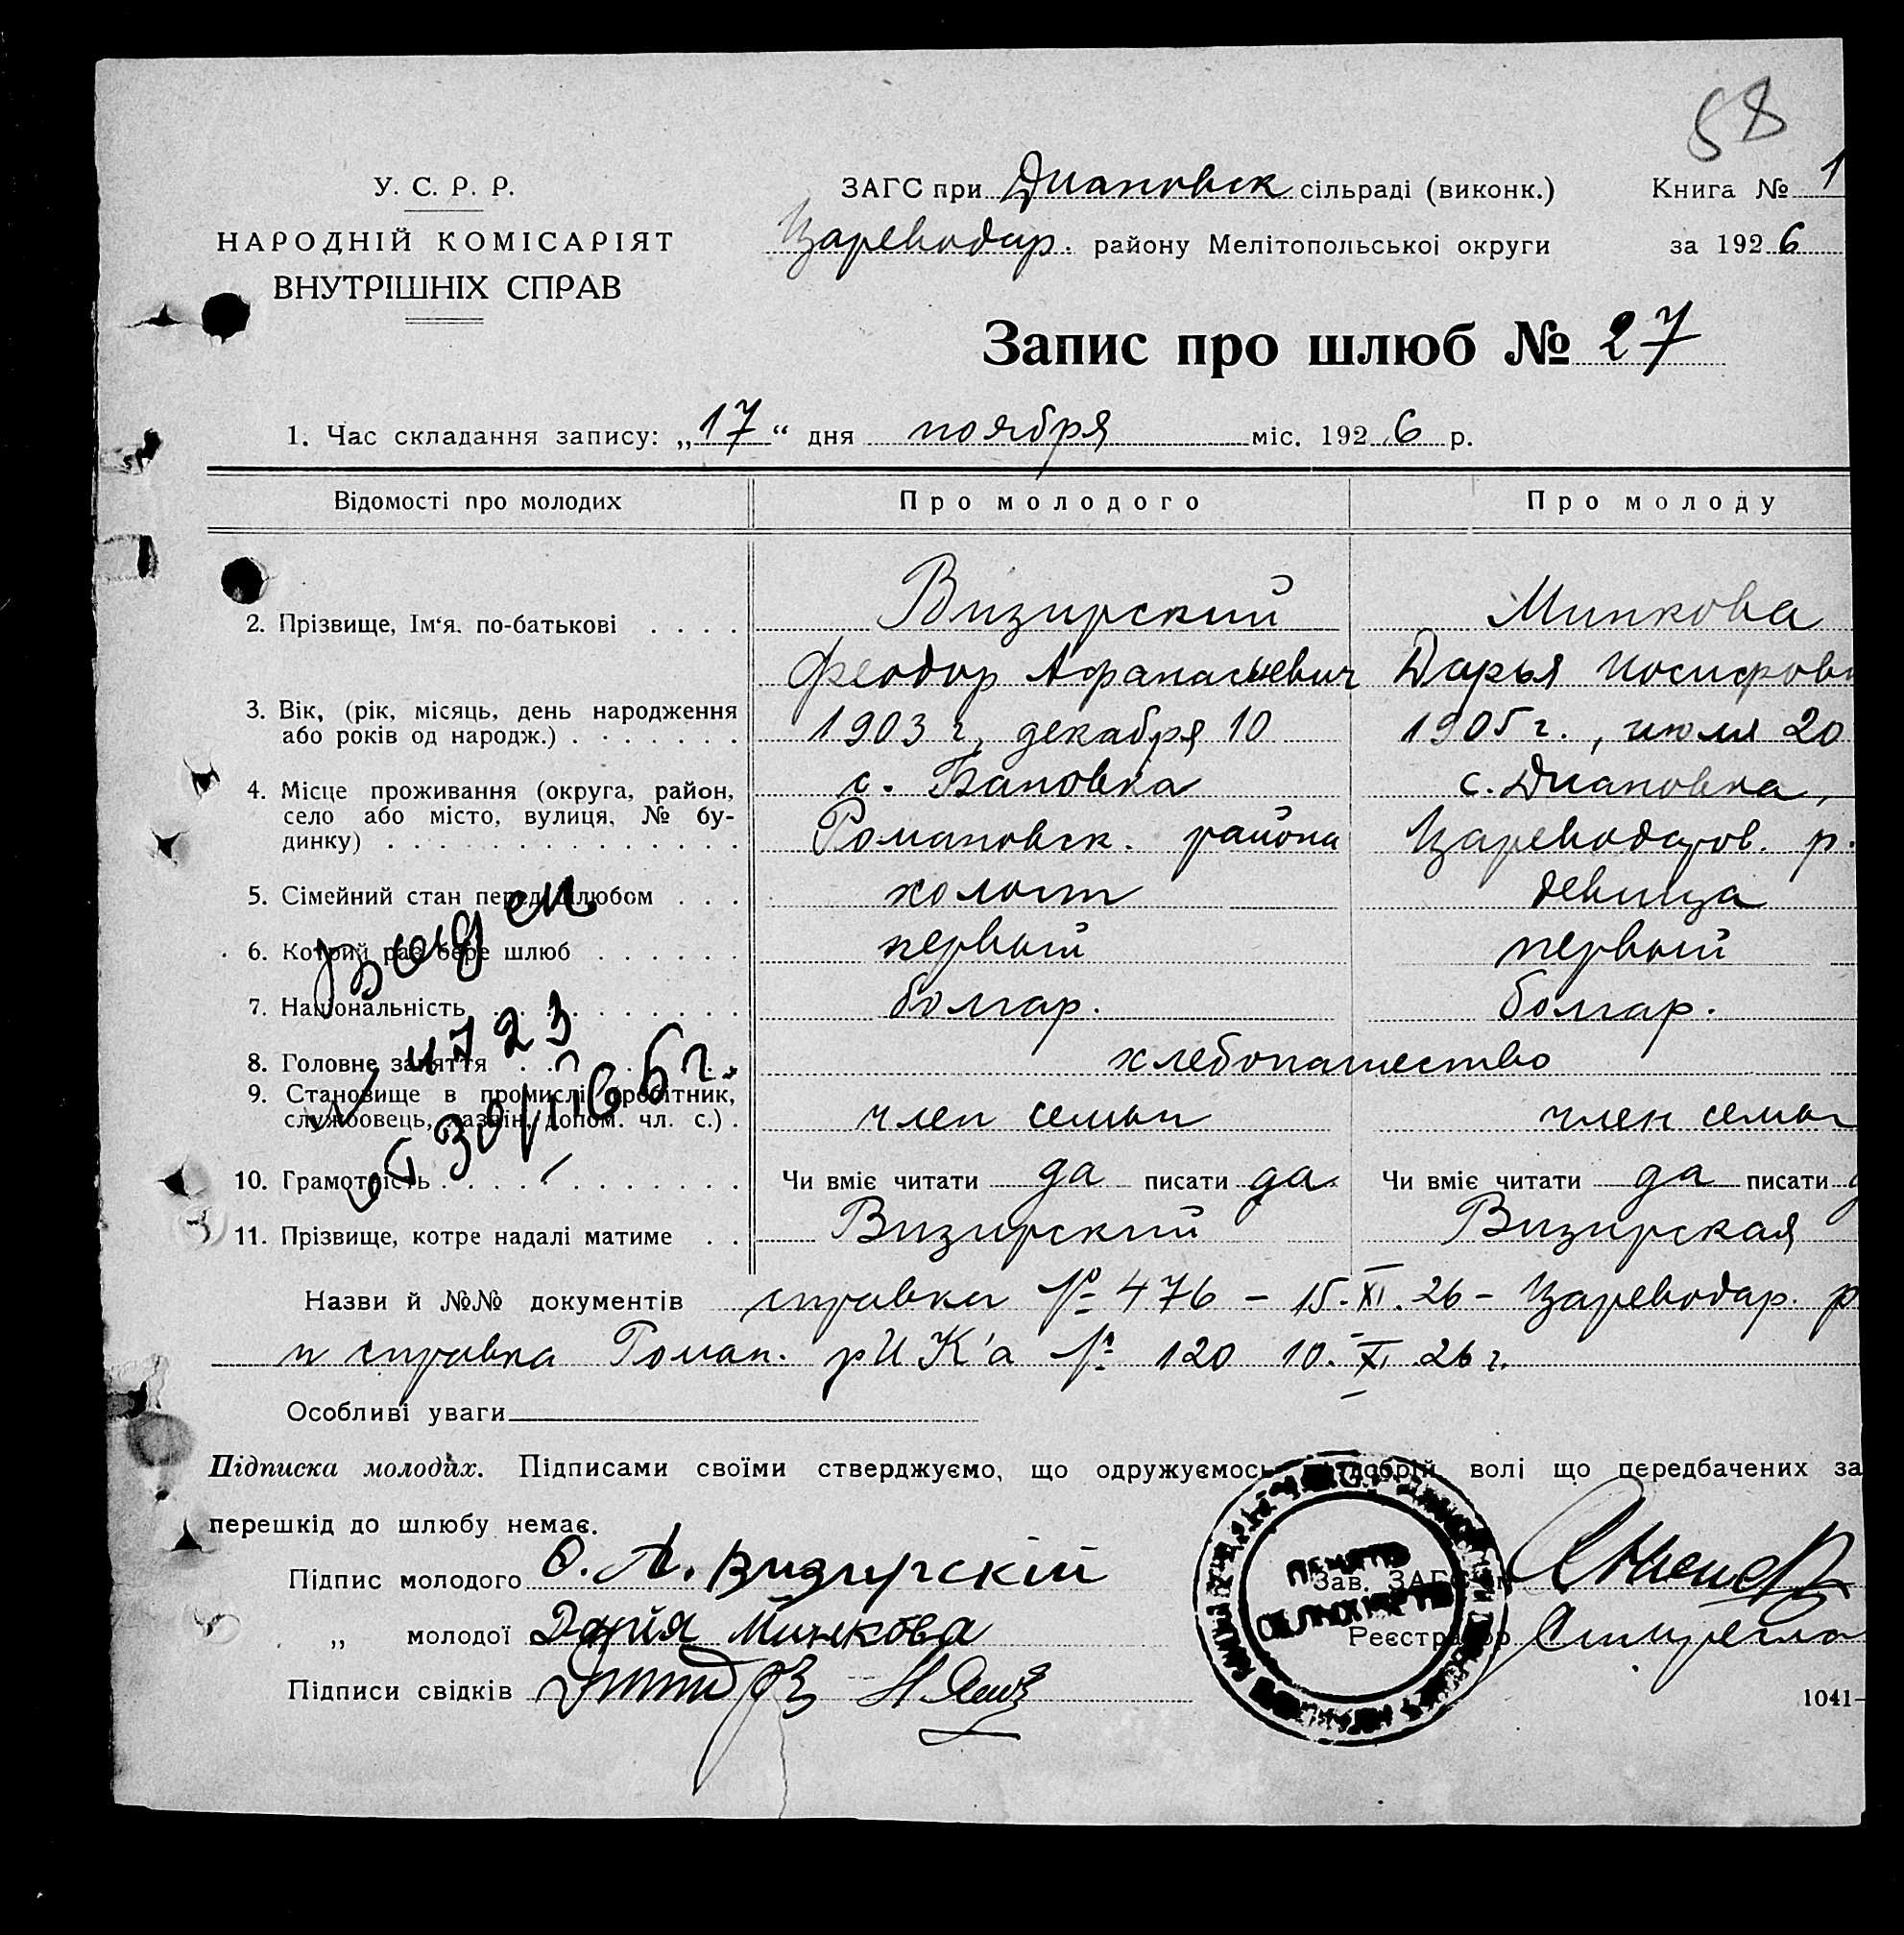 58
У. С. Р. Р.
НАРОДНІЙ КОМІСАРІЯТ
ВНУТРІШНІХ СПРАВ
ЗАГС при Диановск сільраді (виконк.)
Книга № 1
Цареводар. району Мелітопольської округи
за 1926
Запис про шлюб № 27
1. Час складання запису: „17“ дня ноября міс. 1926 р.
Відомості про молодих Про молодого Про молоду
2. Прізвище, Ім‘я. по-батькові . . . . Визирский Минкова
Феодор Афанасьевич Дарья Иосифов
3. Вік, (рік, місяць, день народження
або років од народж.) . . . . . . . 1903 г, декабря 10 1905 г., июля 20
4. Місце проживання (округа, район, с. Бановка с. Диановка,
село або місто, вулиця, № бу-
динку) . . . . . . . . . . . . . . . Романовск. района Цареводаров. р.
5. Сімейний стан перед шлюбом . . . холост девица
6. Котрий раз бере шлюб . . . . . . первый первый
7. Національність . . . . . . . . . . болгар. болгар.
8. Головне заняття . . . . . . . . хлебопашество
9. Становище в промислі (робітник,
службовець, хазяїн, допом. чл. с.) . член семьи член семьи
10. Грамотність . . . . . . . . . . . Чи вміє читати да писати да Чи вміє читати да писати
11. Прізвище, котре надалі матиме . . Визирский Визирская
Выдан
4723
от 30/ІІ 65 г.
Назви й №№ документів справка № 476 – 15.XI.26 – Цареводар. р
и справка Роман. рИК'а № 120 10.XI.26 г.
Особливі уваги
Підписка молодих. Підписами своїми стверджуємо, що одружуємось по добрій волі що передбачених за
перешкід до шлюбу немає.
Підпис молодого Ѳ. А. Визирскій
Зав. ЗАГС'ом
„ молодої Дарйя Минкова
Реєстратор
Підписи свідків
1041-